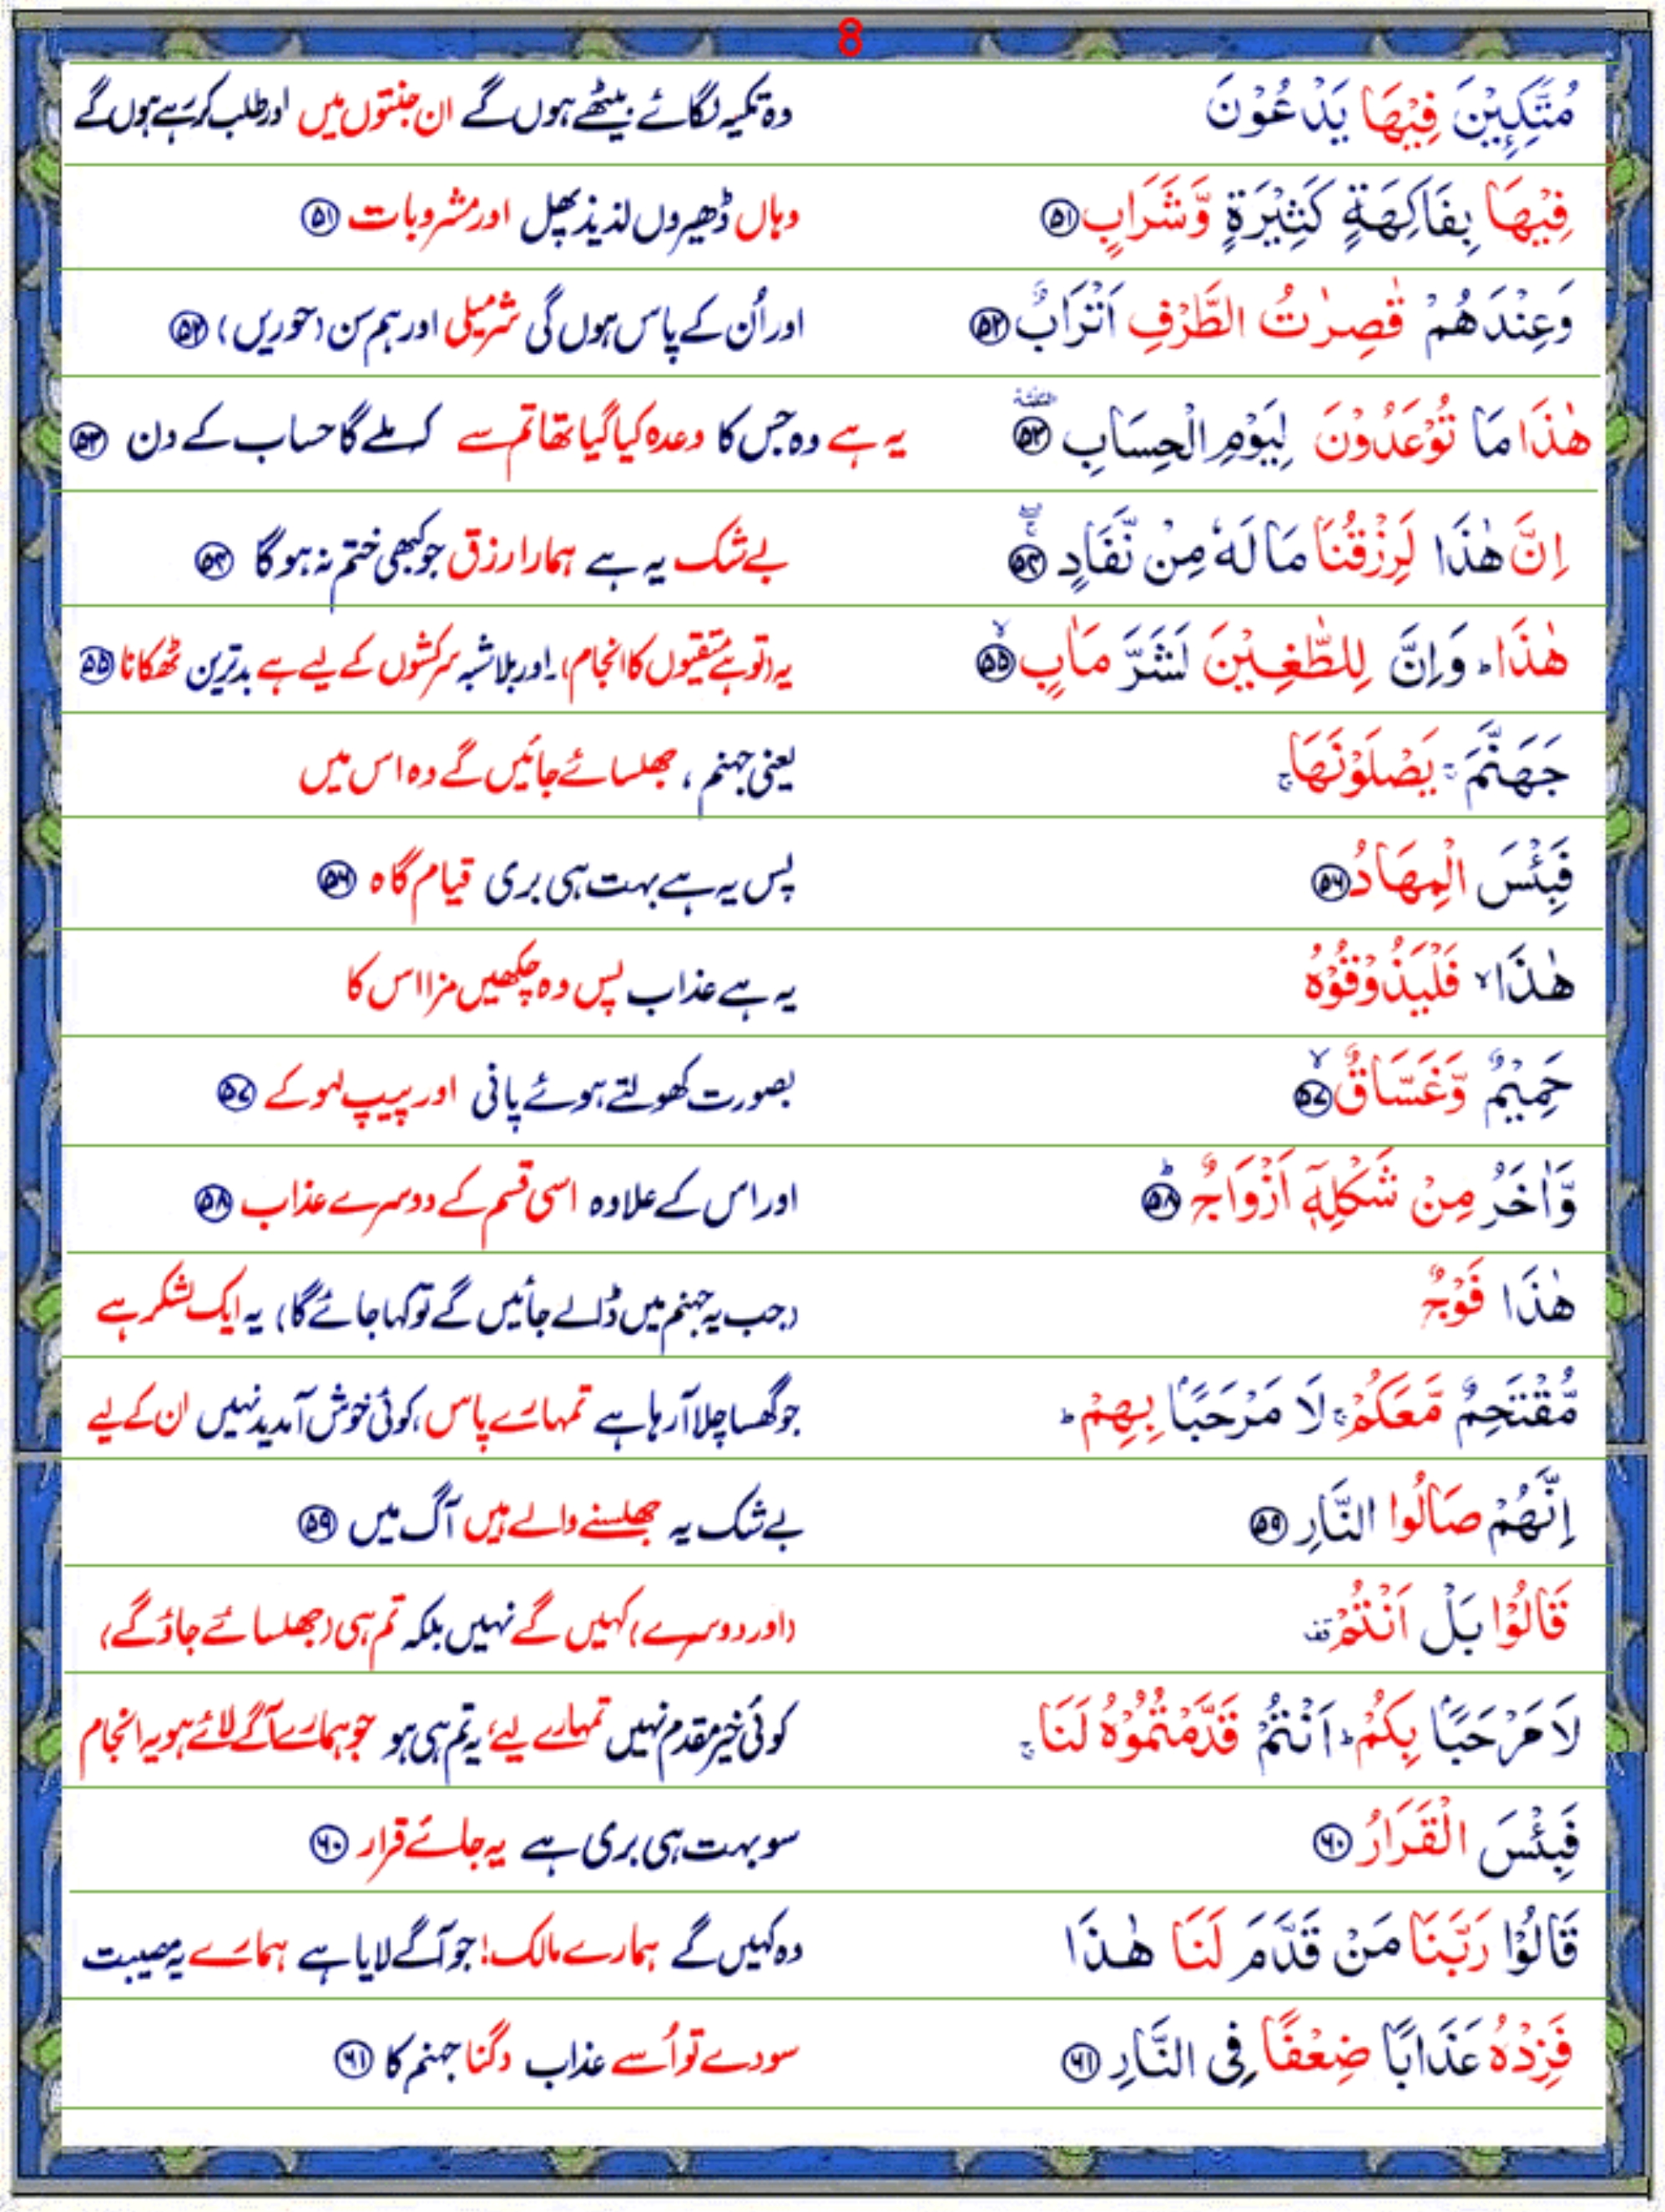 8
مُتَّكِـِٕيْنَ فِيْهَا يَدْعُوْنَ وہ تکیہ لگائے بیٹھے ہوں گے ان جنتوں میں اور طلب کر رہے ہوں گے
فِيْهَا بِفَاكِهَةٍ كَثِيْرَةٍ وَّشَرَابٍ ۵۱ وہاں ڈھیروں لذیذ پھل اور مشروبات ۵۱
وَعِنْدَهُمْ قٰصِرٰتُ الطَّرْفِ اَتْرَابٌ ۵۲ اور اُن کے پاس ہوں گی شرمیلی اور ہم سن (حوریں) ۵۲
هٰذَا مَا تُوْعَدُوْنَ لِيَوْمِ الْحِسَابِ ۵۳ یہ ہے وہ جس کا وعدہ کیا گیا تھا تم سے کہ ملے گا حساب کے دن ۵۳
اِنَّ هٰذَا لَرِزْقُنَا مَا لَهٗ مِنْ نَّفَادٍ ۵۴ بے شک یہ ہے ہمارا رزق جو کبھی ختم نہ ہو گا ۵۴
هٰذَا ؕ وَاِنَّ لِلطّٰغِيْنَ لَشَرَّ مَاٰبٍ ۙ ۵۵ یہ (تو ہے متقیوں کا انجام)۔ اور بلاشبہ سرکشوں کے لیے ہے بدترین ٹھکانا ۵۵
جَهَنَّمَ ۚ يَصْلَوْنَهَا ۚ یعنی جہنم، جھلسائے جائیں گے وہ اس میں
فَبِئْسَ الْمِهَادُ ۵۶ پس یہ ہے بہت ہی بری قیام گاہ ۵۶
هٰذَا ۙ فَلْيَذُوْقُوْهُ یہ ہے عذاب پس وہ چکھیں مزا اس کا
حَمِيْمٌ وَّغَسَّاقٌ ۙ ۵۷ بصورت کھولتے ہوئے پانی اور پیپ لہو کے ۵۷
وَّاٰخَرُ مِنْ شَكْلِهٖٓ اَزْوَاجٌ ؕ ۵۸ اور اس کے علاوہ اسی قسم کے دوسرے عذاب ۵۸
هٰذَا فَوْجٌ (جب یہ جہنم میں ڈالے جائیں گے تو کہا جائے گا) یہ ایک لشکر ہے
مُّقْتَحِمٌ مَّعَكُمْ ۚ لَا مَرْحَبًۢا بِهِمْ ؕ جو گھسا چلا آ رہا ہے تمہارے پاس، کوئی خوش آمدید نہیں ان کے لیے
اِنَّهُمْ صَالُوا النَّارِ ۵۹ بے شک یہ جھلسنے والے ہیں آگ میں ۵۹
قَالُوْا بَلْ اَنْتُمْ ۫ (اور دوسرے) کہیں گے نہیں بلکہ تم ہی (جھلسائے جاؤ گے)
لَا مَرْحَبًۢا بِكُمْ ؕ اَنْتُمْ قَدَّمْتُمُوْهُ لَنَا ۚ کوئی خیر مقدم نہیں تمہارے لیے، یہ تم ہی ہو جو ہمارے آگے لائے ہو یہ انجام
فَبِئْسَ الْقَرَارُ ۶۰ سو بہت ہی بری ہے یہ جائے قرار ۶۰
قَالُوْا رَبَّنَا مَنْ قَدَّمَ لَنَا هٰذَا وہ کہیں گے ہمارے مالک! جو آگے لایا ہے ہمارے یہ مصیبت
فَزِدْهُ عَذَابًا ضِعْفًا فِى النَّارِ ۶۱ سو دے تو اُسے عذاب دگنا جہنم کا ۶۱